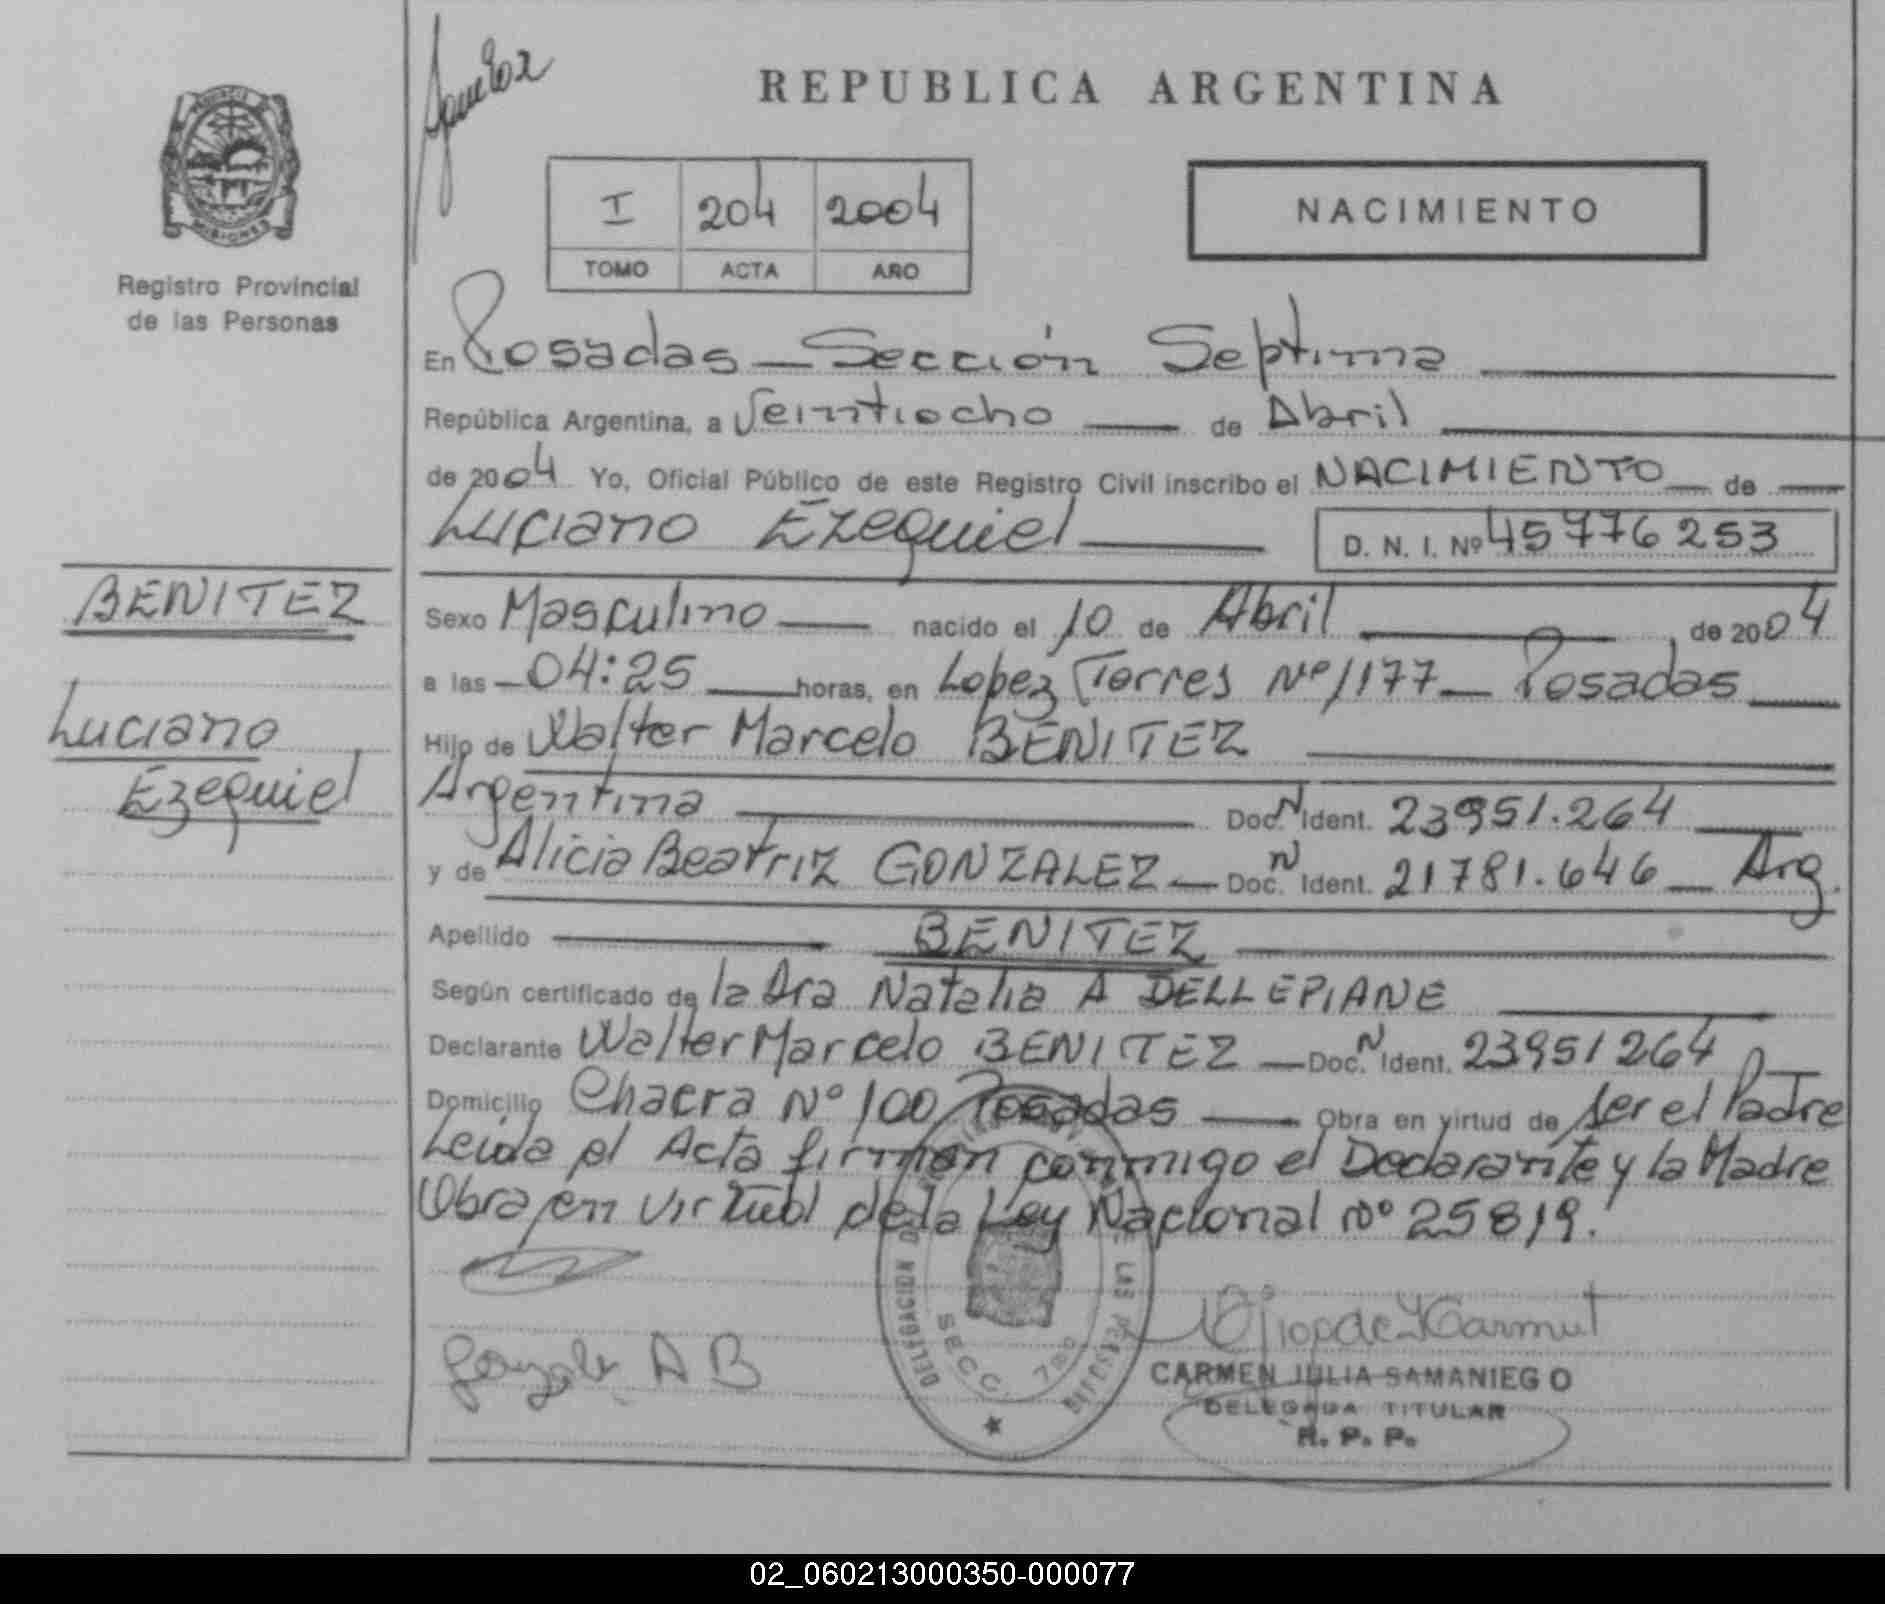 REPUBLICA ARGENTINA
MISIONES
Registro Provincial
de las Personas
I 204 2004
TOMO ACTA AÑO
NACIMIENTO
En Posadas — Sección Septima
República Argentina, a Veintiocho de Abril
de 2004 Yo, Oficial Público de este Registro Civil inscribo el NACIMIENTO de
Luciano Ezequiel D. N. I. Nº 45776253
BENITEZ
Luciano
Ezequiel
Sexo Masculino nacido el 10 de Abril, de 2004
a las 04:25 horas, en Lopez Torres Nº 1177 — Posadas
Hijo de Walter Marcelo BENITEZ
Argentina Doc. N Ident. 23951.264
y de Alicia Beatriz GONZALEZ — Doc. N Ident. 21781.646 — Arg.
Apellido BENITEZ
Según certificado de la Dra Natalia A DELLEPIANE
Declarante Walter Marcelo BENITEZ — Doc. N Ident. 23951264
Domicilio Chacra Nº 100 Posadas Obra en virtud de ser el Padre
Leida el Acta firman conmigo el Declarante y la Madre
Obra en virtud de la Ley Nacional Nº 25819.
DELEGACION DE LAS PERSONAS
SECC. 7ma
Gonzalez A B
CARMEN JULIA SAMANIEGO
DELEGADA TITULAR
R. P. P.
02_060213000350-000077